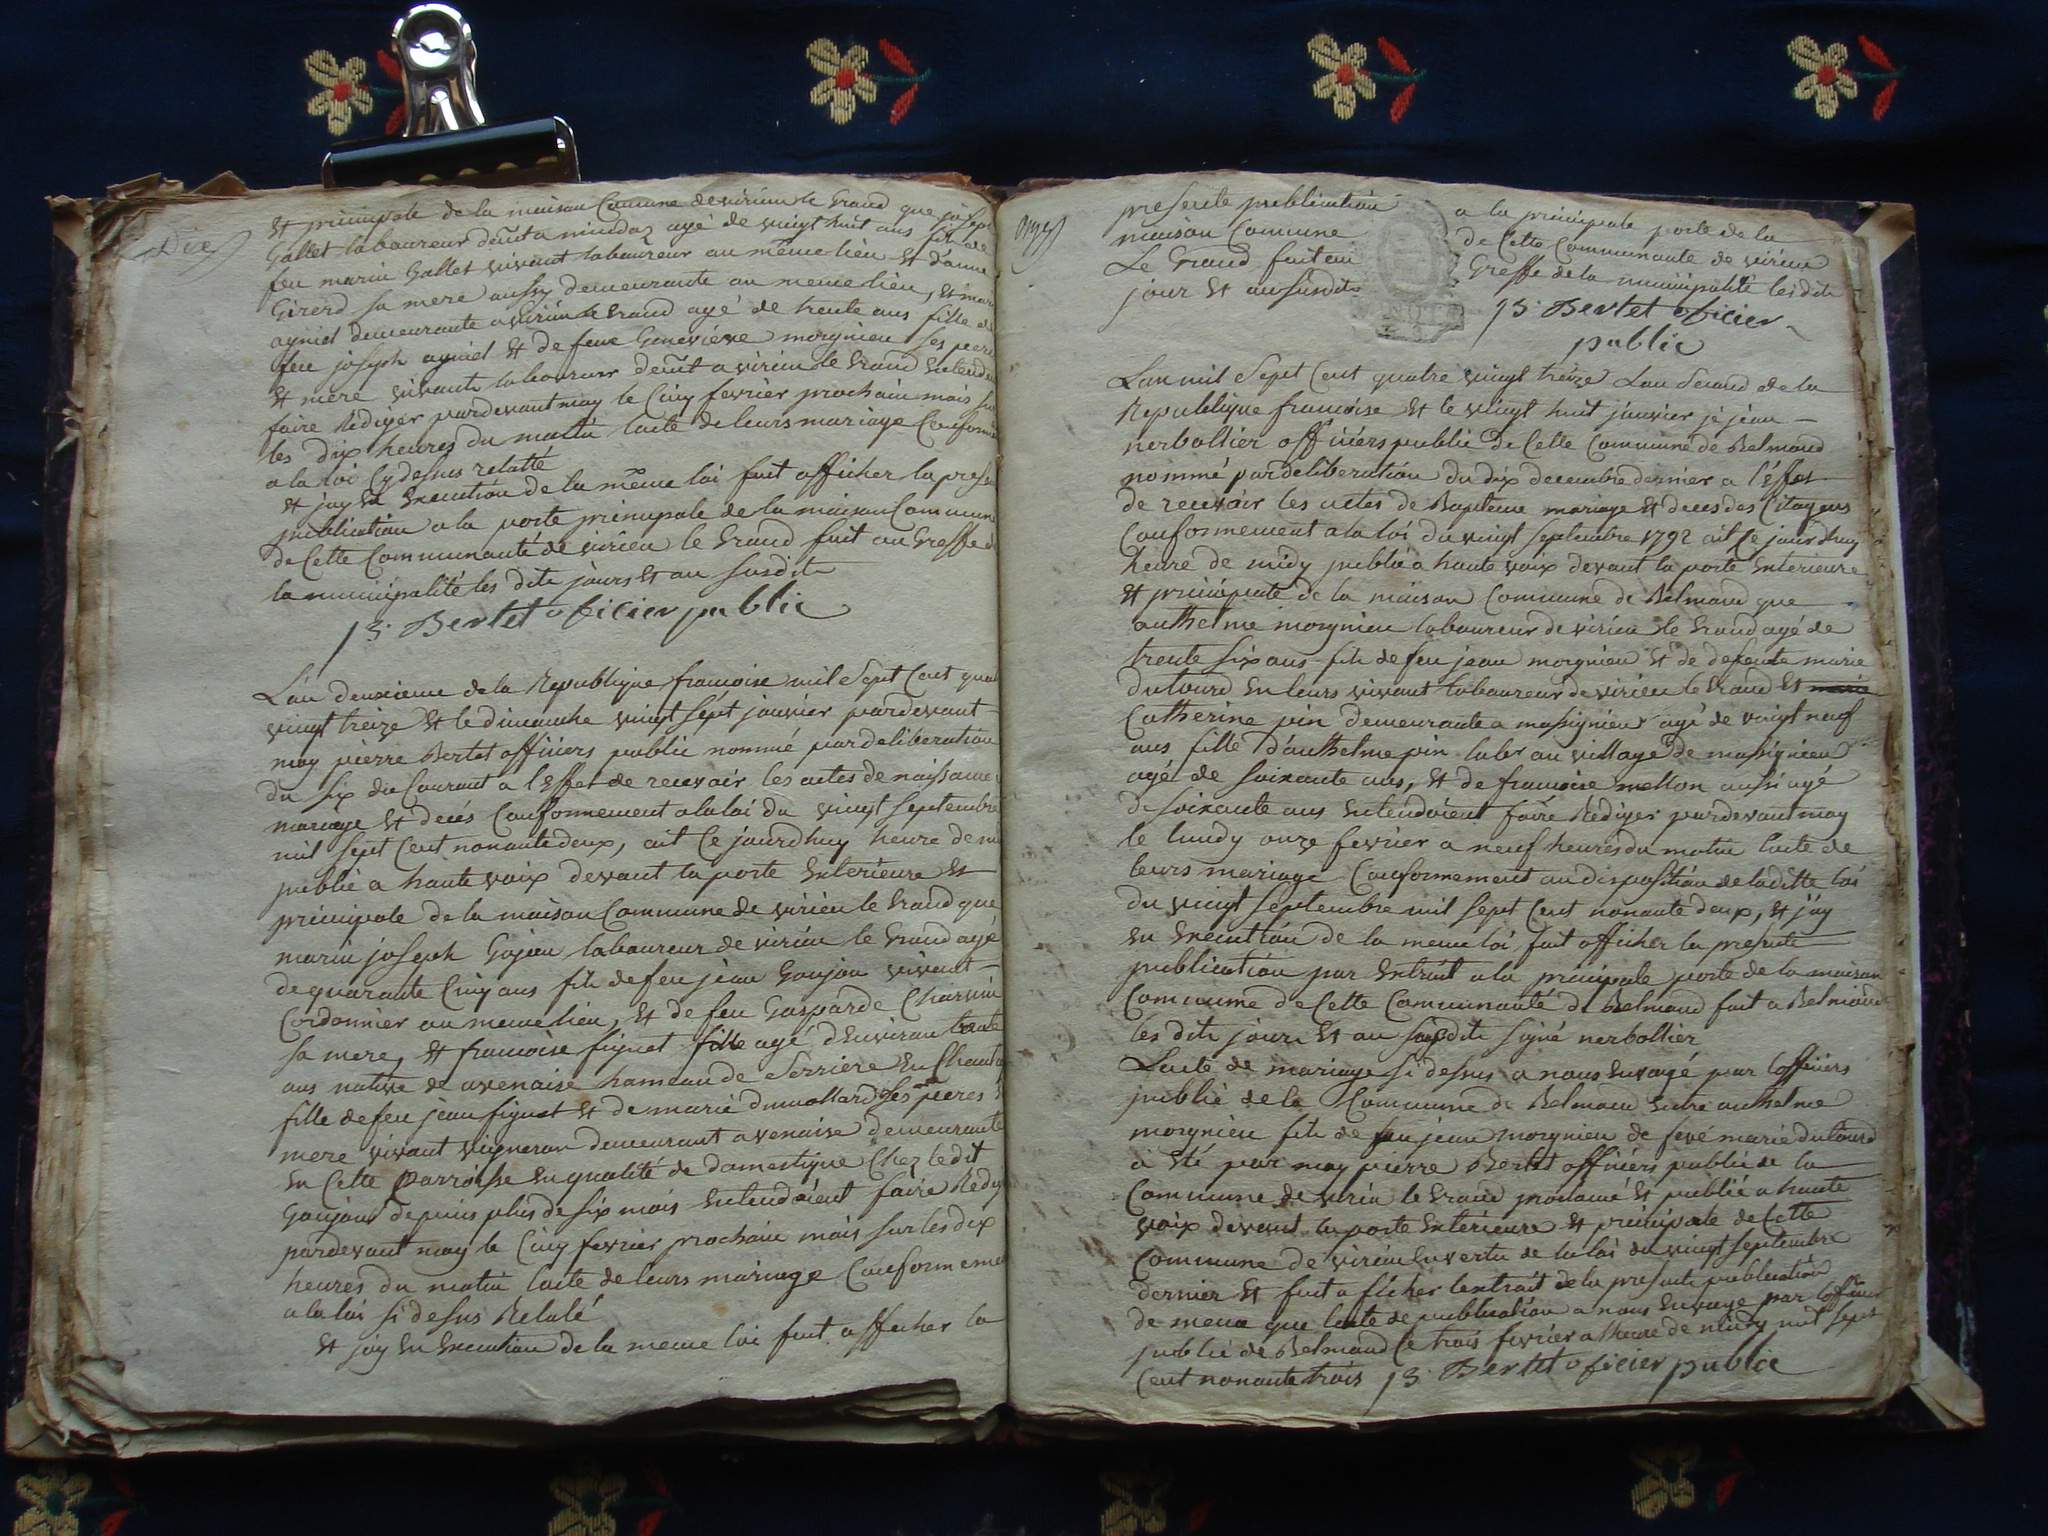 Dix
Et principale de la maison Comune de virieu le Grand que joseph
Gallet laboureur deüt a mindaz agé de vingt huit ans fils de
feu marin Gallet vivant laboureur au même lieu et d'anne
Girerd sa mere aussy demeurante au meme lieu, et mari
ayniel demeurante a virieu le Grand agé de trente ans fille de
feu joseph ayniel et de feue Geneviéve morgnieu ses pere
et mere vivants laboureur deüt a virieu le Grand Entendoi
faire Rediger pardevant moy le Cinq fevrier prochain mois sur
les dix heures du matin lacte de leurs mariage Conformé
a la loi Cy dessus relatté
et jay En Execution de la même loi fait afficher la prese
publication a la porte principale de la maison Commune
de Cette Communauté de virieu le Grand fait au Greffe de
la municipalité les dits jours et an susdits
p. Bertet oficier public
L'an deuxieme de la Republique francoise mil Sept Cent quat
vingt treize et le dimanche vingt sept janvier pardevant
moy pierre Bertet officiers public nommé par deliberation
du six du Courant a l'effet de recevoir les actes de naissance
mariage et decés Conformement a la loi du vingt septembre
mil sept Cent nonante deux, ait Ce jourdhuy heure de mi
publié a haute voix devant la porte Exterieure et
principale de la maison Commune de virieu le Grand que
marin joseph Gojou laboureur de virieu le Grand agé
de quarante Cinq ans fils de feu jean Goujon vivant
Cordonnier au meme lieu, et de feu Gasparde Charvin
sa mere, et francoise figuet fille agé d'environ trente
ans native de avenaise hameau de Serriere En Chauta
fille de feu jean figuet et de marie dumollard ses peres &
mere vivant vigneron demeurant avenaise demeurante
En Cette parroisse en qualité de domestique Chez ledit
Goujon depuis plus de six mois entendoient faire Redig
pardevant moy le Cinq fevrier prochain mois sur les dix
heures du matin lacte de leurs mariage Conformemen
a la loi si desus Relaté
et jay en Execution de la meme loi fait afficher la
onze
presente publication a la principale porte de la
maison Commune de Cette Communauté de virieu
Le Grand fait au Greffe de la municipalité les dits
jour et an susdits
p. Bertet oficier
public
Lan mil Sept Cent quatre vingt treize Lan Second de la
Republique francoise et le vingt huit janvier je jean
nerbollier officiers public de Cette Commune de Belmond
nommé par deliberation du dix decembre dernier a l'éffet
de recevoir les actes de Bapteme mariage et deces des Citoyens
Conformement a la loi du vingt septembre 1792 ait Ce jourdhuy
heure de midy publié a haute voix devant la porte Exterieure
et principale de la maison Commune de Belmond que
anthelme morgnieu laboureur de virieu le Grand agé de
trente six ans fils de feu jean morgnieu et de defunte marie
dutourd en leurs vivant laboureur de virieu le Grand et marie
Catherine pin demeurante a massignieu agé de vaingt neuf
ans fille d'anthelme pin labr au village de massignieu
agé de soixante ans, et de francoise mellon aussi agé
de soixante ans Entendoient faire Rediger pardevant moy
le lundy onze fevrier a neuf heures du matin lacte de
leurs mariage Conformement au disposition de la ditte loi
du vingt septembre mil sept Cent nonante deux, et j'ay
en Execution de la meme loi fait afficher la presente
publication par Extrait a la principale porte de la maison
Commune de Cette Communauté de Belmond fait a Belmond
les dits jours et an susdits signé nerbollier
Lacte de mariage si dessus a nous Envoyé par Lofficiers
public de la Commune de Belmond Entre anthelme
morgnieu fils de feu jean morgnieu de feué marie dutourd
à été par moy pierre Bertet officiers public de la
Commune de virieu le Grand proclamé et publié a haute
voix devant la porte Exterieure et principale de Cette
Commune de virieu En vertu de la loi du vingt septembre
dernier et fait aficher lextrait de la presente publication
de meme que lacte de publication a nous Envoye par lofficier
public de Belmond Ce trois fevrier a lheure de midy mil sept
Cent nonante trois p. Bertet oficier public